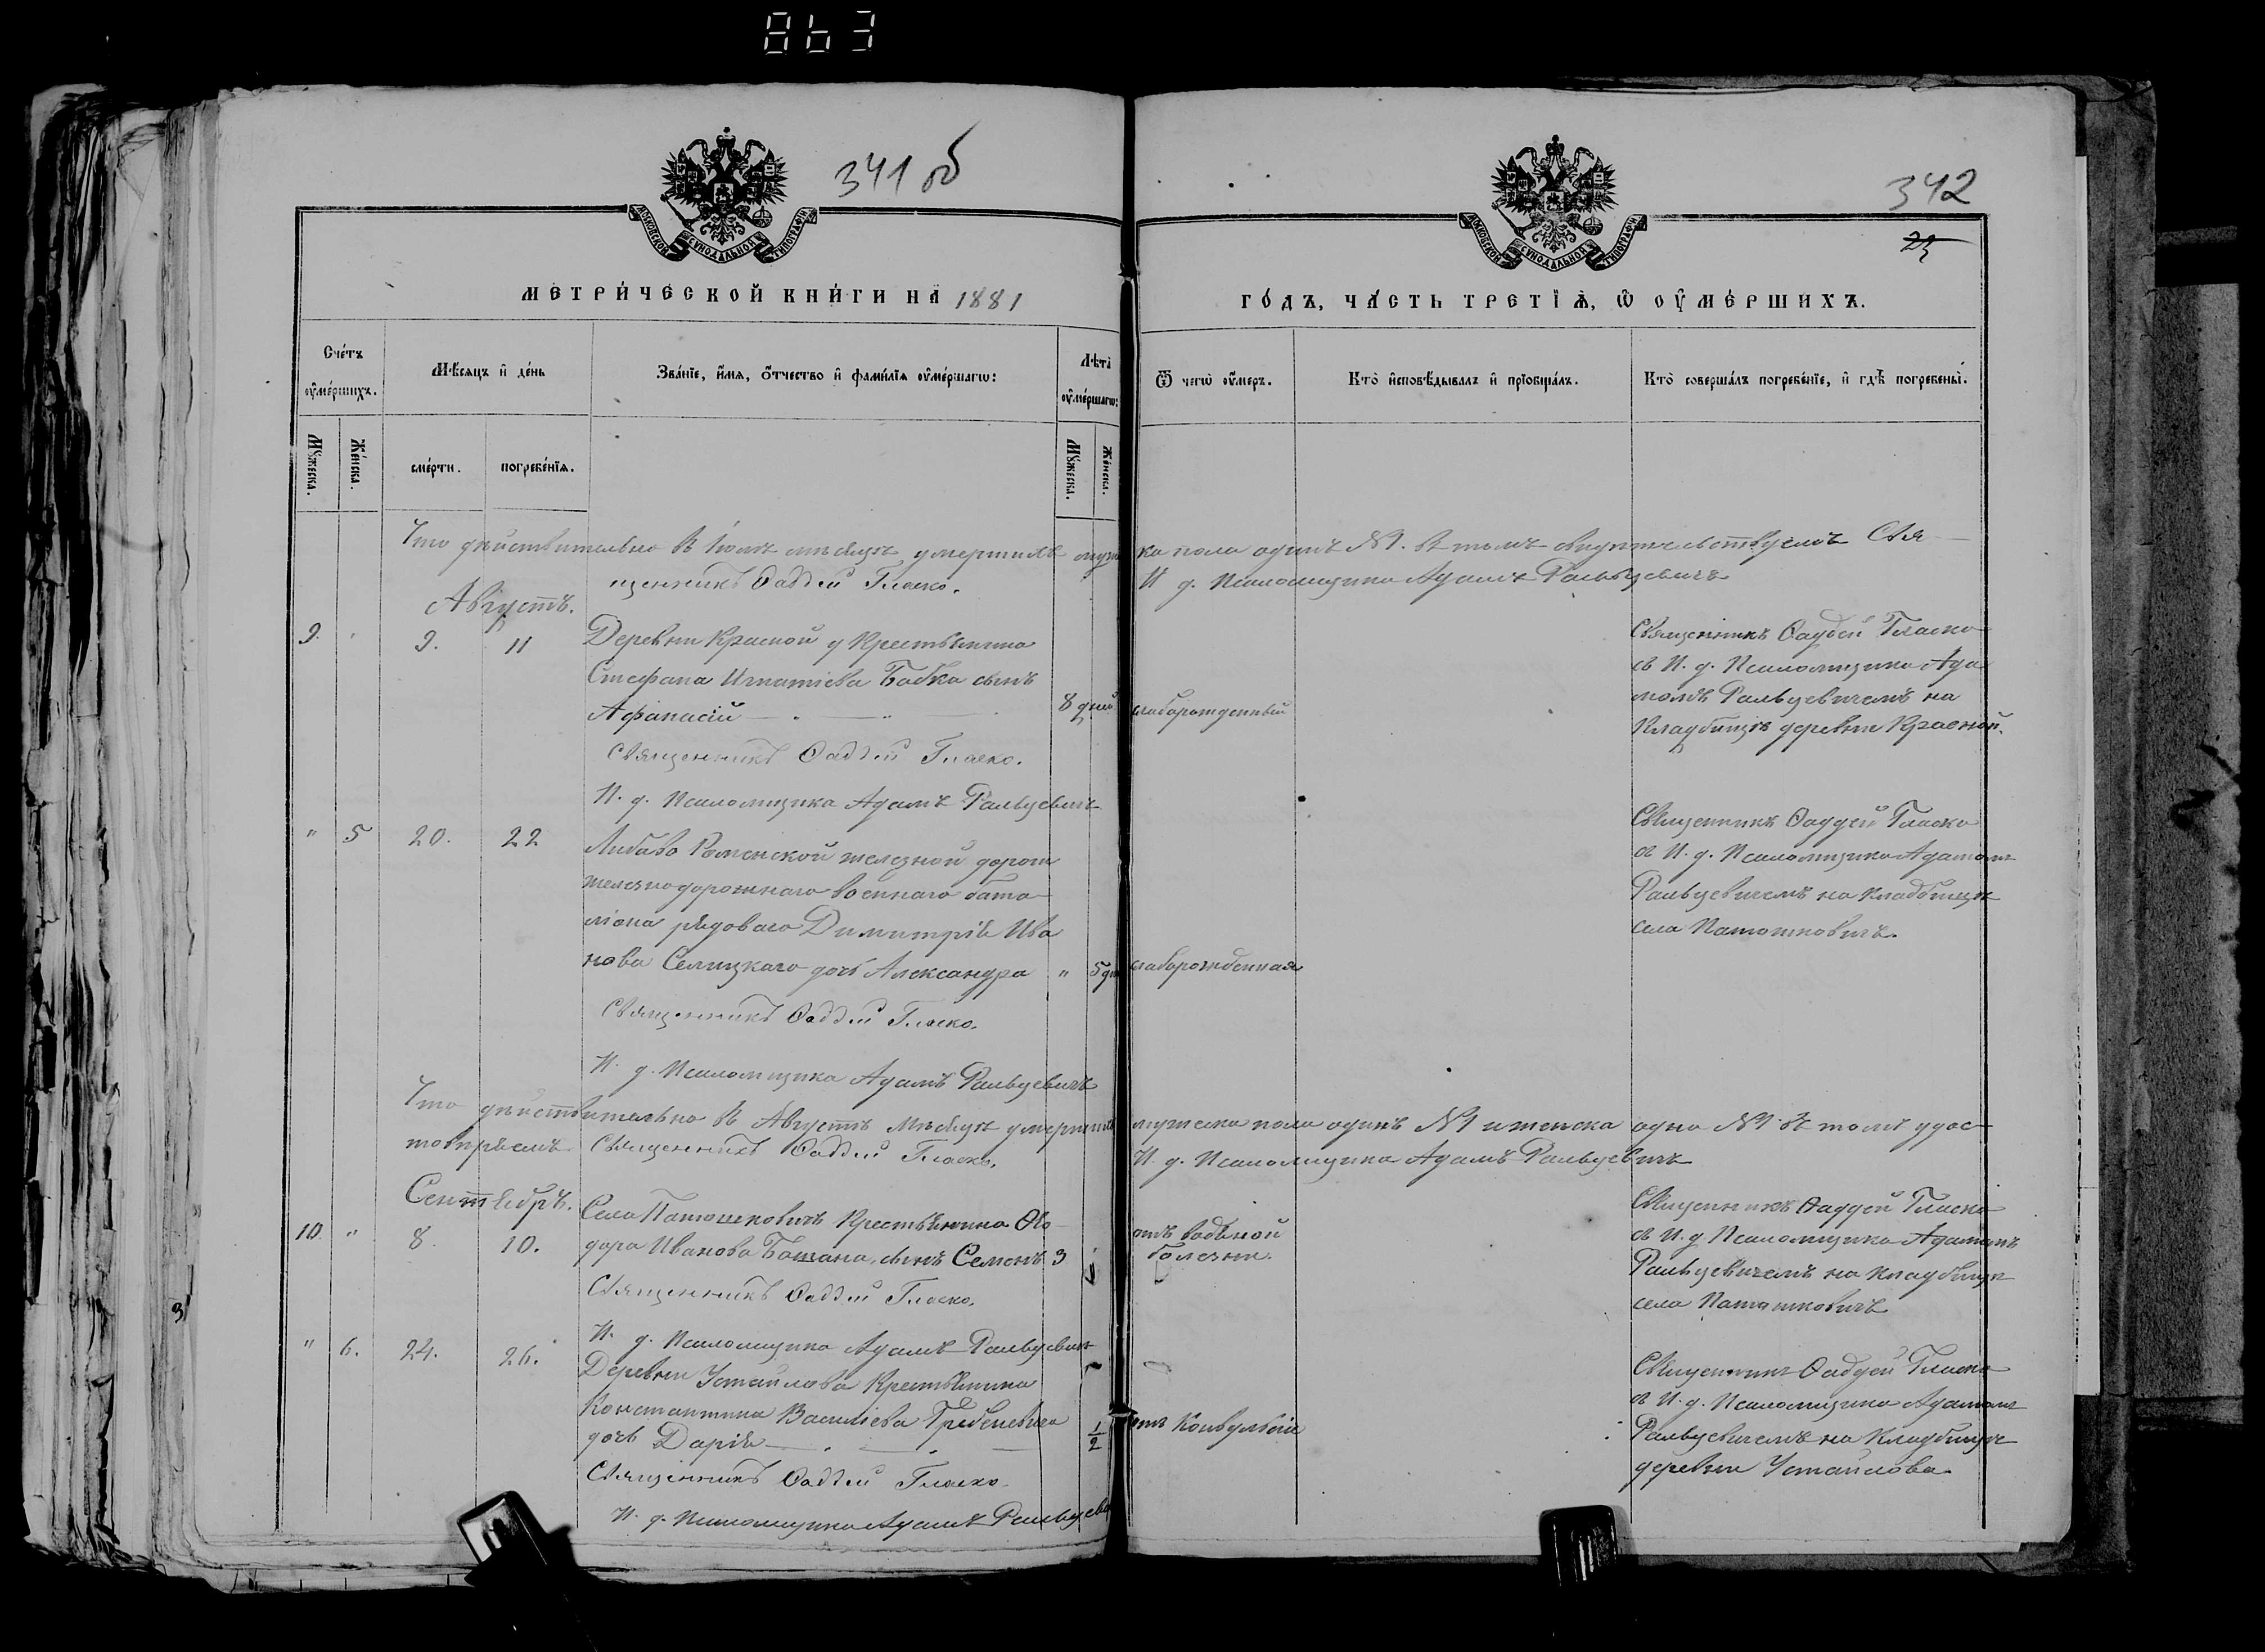 863
341 об
МОСКОВСКОЙ СѴНОДАЛЬНОЙ ТИПОГРАФІИ
МЕТРИЧЕСКОЙ КНИГИ НА 1881
Счетъ оумершихъ.
Мѣсяцъ и день
Званіе, имя, отчество и фамилія оумершагѡ:
Лѣта оумершагѡ:
Мужеска.
Женска.
смерти.
погребенія.
Мужеска.
Женска.
Что дѣйствительно въ Іюлѣ мѣсяцѣ умершихъ муж
щенникъ Ѳаддей Гласко.
Августъ.
9. " 9. 11 Деревни Красной у Крестьянина
Стефана Игнатіева Бабка сынъ
Афанасій 8 дней
Священникъ Ѳаддей Гласко.
И. д. Псаломщика Адамъ Ральцевичъ
" 5 20. 22 Либаво Роменской железной дороги
железнодорожнаго военнаго бата
ліона рядоваго Димитрія Ива
нова Селицкаго дочь Александра " 5 дн
Священникъ Ѳаддей Гласко.
И. д. Псаломщика Адамъ Ральцевичъ
Что дѣйствительно въ Августѣ Мѣсяцѣ умершихъ
товѣряемъ Священникъ Ѳаддей Гласко.
Сентябрь.
10. " 8. 10. Села Паташковичъ Крестьянина Ѳео
дора Иванова Башана, сынъ Семенъ 3
Священникъ Ѳаддей Гласко.
И. д. Псаломщика Адамъ Ральцевичъ
" 6. 24. 26. Деревни Устайлова Крестьянина
Константина Василіева дочь Дарія 1/2
Священникъ Ѳаддей Гласко
И. д. Псаломщика Адамъ Ральцевичъ
342
23
МОСКОВСКОЙ СѴНОДАЛЬНОЙ ТИПОГРАФІИ
ГОДЪ, ЧАСТЬ ТРЕТІЯ, Ѡ ОУМЕРШИХЪ.
Ѿ чегѡ оумеръ.
Кто исповѣдывалъ и пріобщалъ.
Кто совершалъ погребеніе, и гдѣ погребены.
ка пола одинъ №1. въ томъ свидѣтельствуемъ Свя
И д. Псаломщика Адамъ Ральцевичъ
Священникъ Ѳаддей Гласко
съ И. д. Псаломщика Ада
момъ Ральцевичемъ на
Кладбищѣ деревни Красной.
слаборожденный
Священникъ Ѳаддей Гласко
съ И. д. Псаломщика Адамомъ
Ральцевичемъ на Кладбищѣ
села Паташковичъ.
слаборожденная
мужеска пола одинъ №1 и женска одна №1 въ томъ удос
И. д. Псаломщика Адамъ Ральцевичъ
Священникъ Ѳаддей Гласко
съ И. д Псаломщика Адамомъ
Ральцевичемъ на Кладбищѣ
села Паташковичъ
отъ водяной
болезни.
Священникъ Ѳаддей Гласко
съ И. д. Псаломщика Адамомъ
Ральцевичемъ на Кладбищѣ
деревни Устайлова.
отъ Конвульсіи